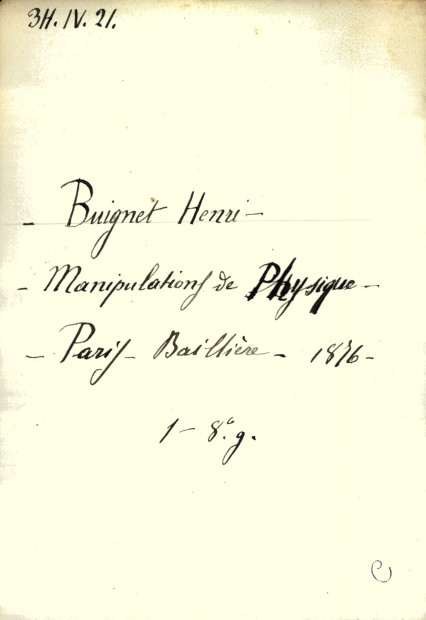 3H. IV. 21.
- Buignet Henri -
- Manipulations de Physique -
- Paris - Baillière - 1876 -
1 - 8.° g.
C